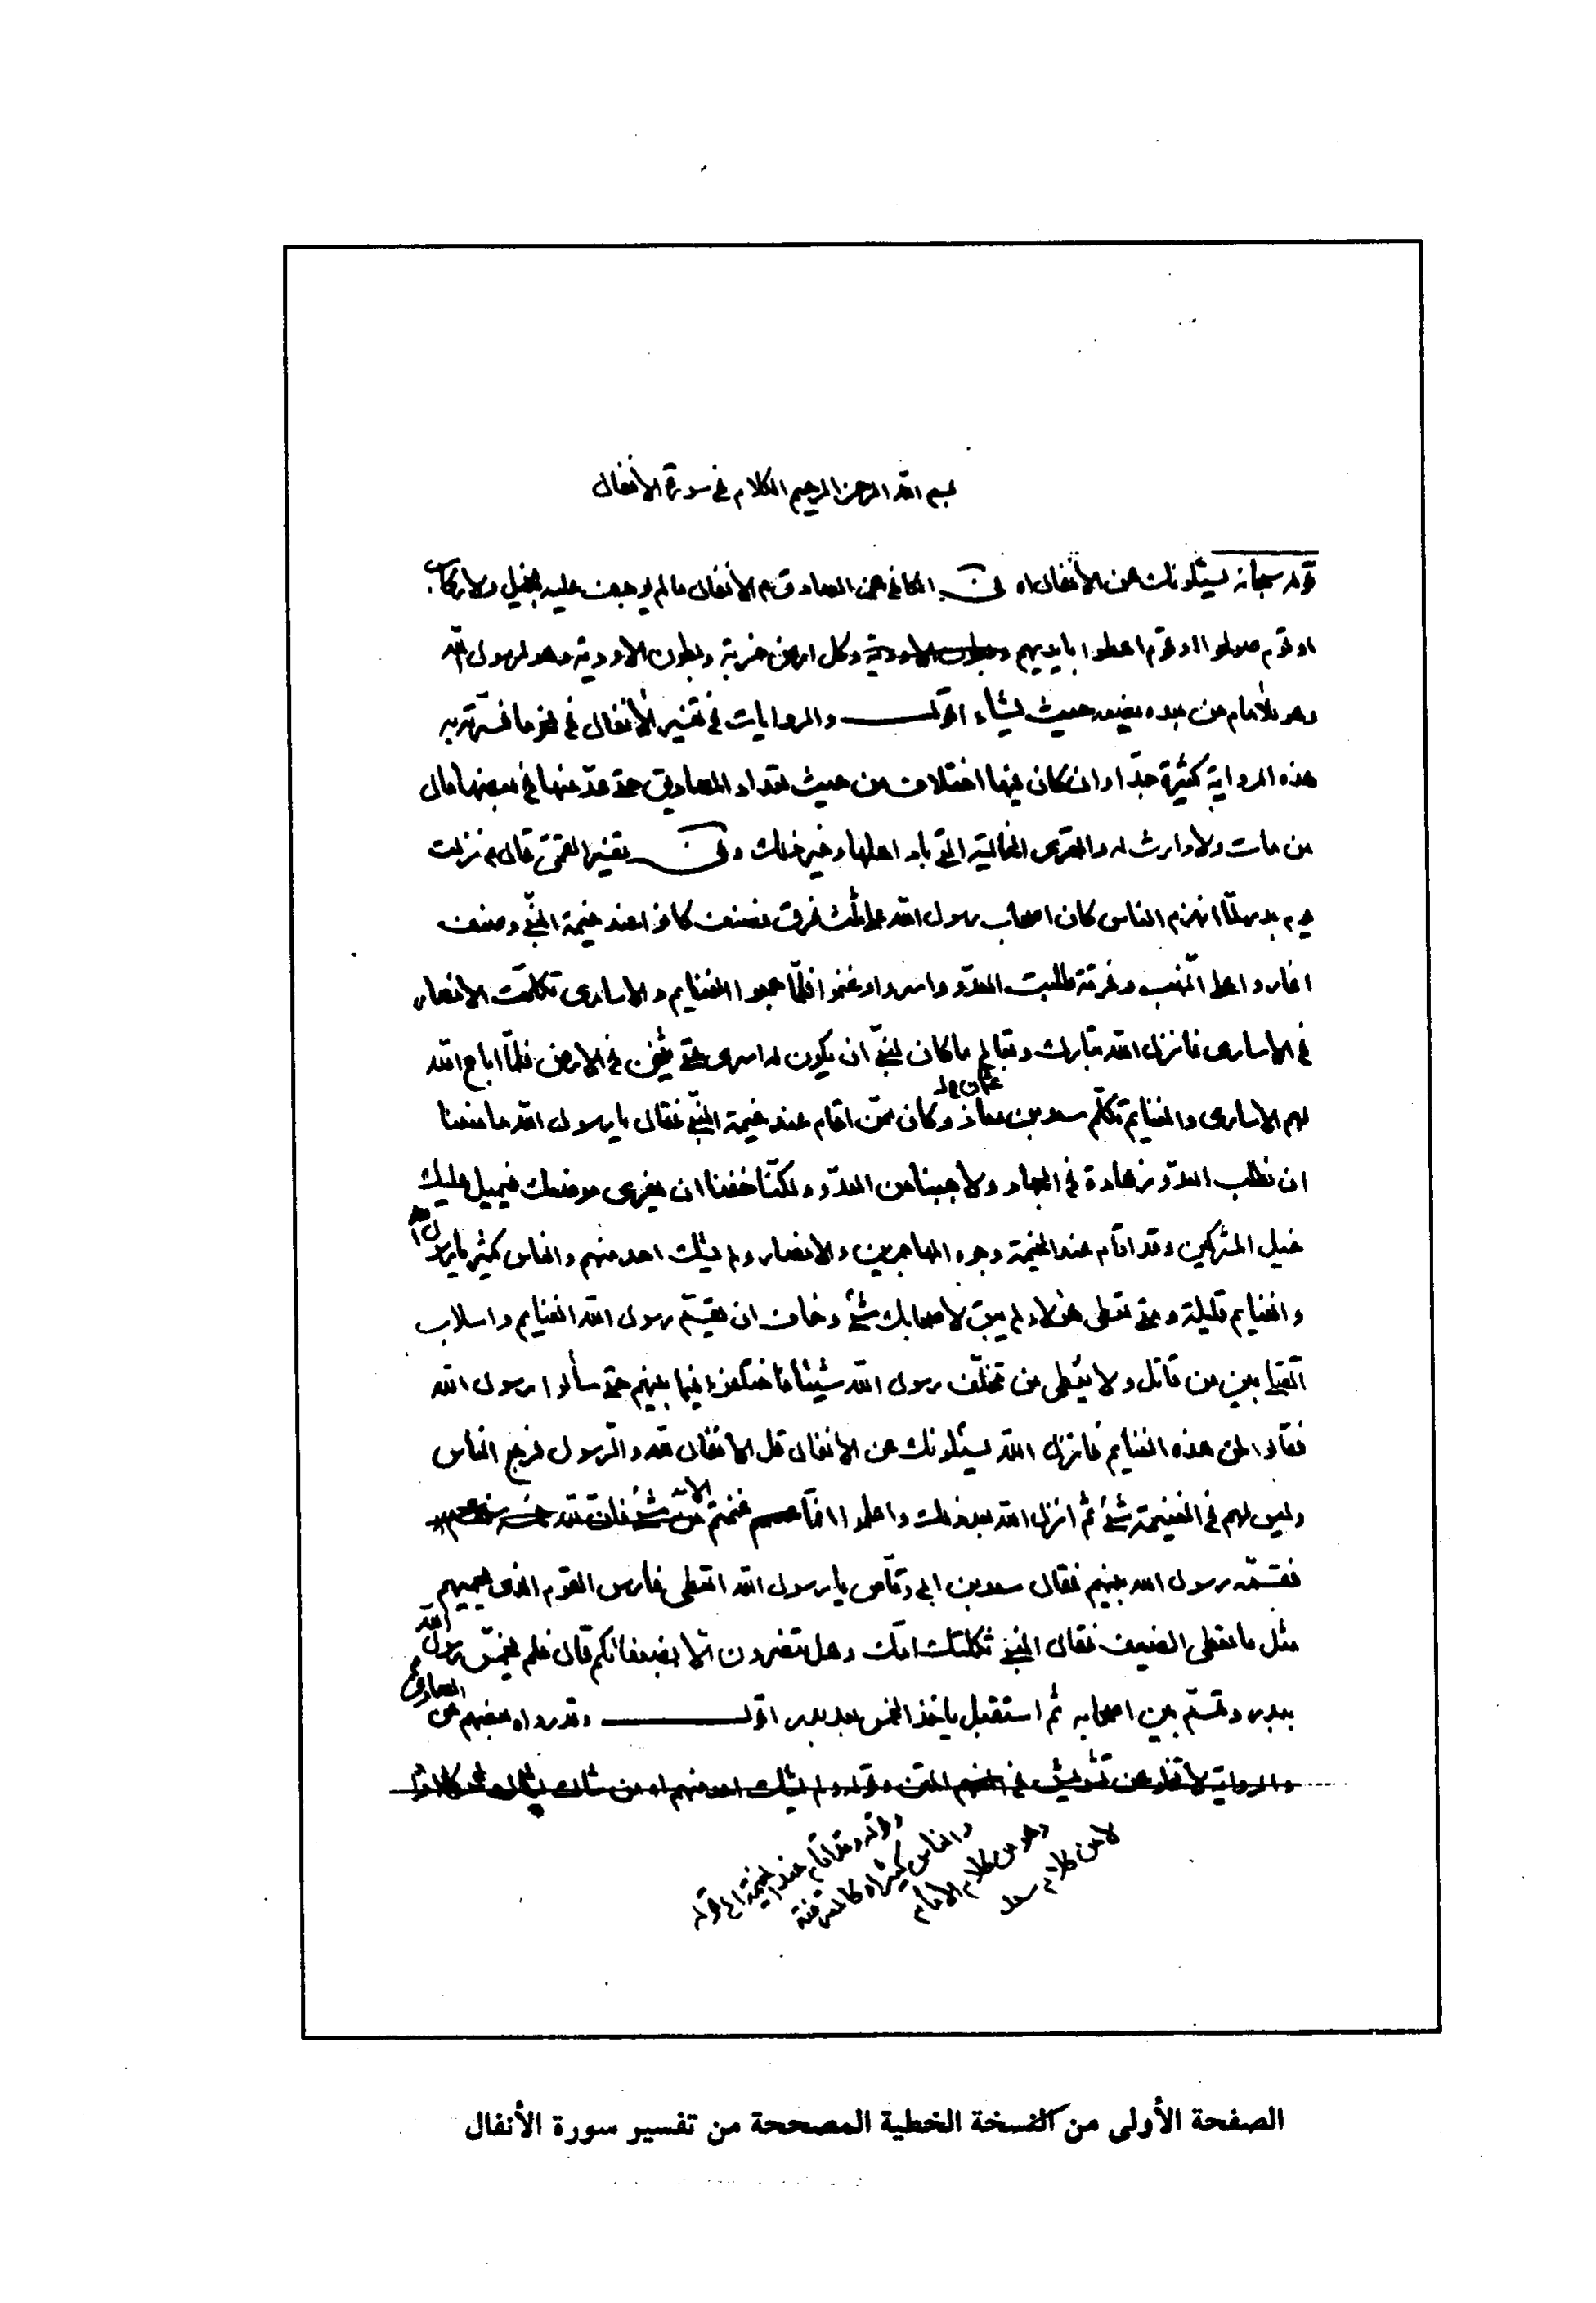 بسم الله الرحمن الرحيم الكلام في سورة الأنفال
قوله سبحانه يسئلونك عن الأنفال اه في الكافي عن الصادق ع الأنفال ما لم يوجف عليه بخيل ولا ركاب
او قوم صولحوا او قوم اعطوا بايديهم وكل ارض خربة وبطون الاودية وهو لرسول الله
وهو للامام من بعده يضعه حيث يشاء اقول والروايات في تفسير الأنفال في نحو ما فسرته به
هذه الرواية كثيرة جدّا وان كان فيها اختلاف من حيث تعداد المصاديق حتى عدّ منها في بعضها مال
من مات ولا وارث له والقرى الخالية التي باد اهلها وغير ذلك وفي تفسير القمّيّ قال ع نزلت
يوم بدر لمّا انهزم الناس كان اصحاب رسول الله على ثلث فرق فصنف كانوا عند خيمة النبيّ وصنف
اغاروا على النهب وفرقة طلبت العدوّ واسروا وغنموا فلمّا جمعوا الغنايم والاسارى تكلّمت الانصار
في الاسارى فانزل الله تبارك وتعالى ما كان لنبيّ ان يكون له اسرى حتى يثخن في الارض فلمّا اباح الله
لهم الاسارى والغنايم تكلّم سعد بن معاذ وكان ممّن اقام عند خيمة النبيّ فقال يا رسول الله ما منعنا
ان نطلب العدوّ زهادة في الجهاد ولا جبنا من العدوّ ولكنّا خفنا ان يعرى موضعك فيميل عليك
خيل المشركين وقد اقام عند الخيمة وجوه المهاجرين والانصار ولم يشك احد منهم والناس كثير يا رسول الله
والغنايم قليلة ومتى تعطى هؤلاء لم يبق لاصحابك شئ وخاف ان يقسّم رسول الله الغنايم واسلاب
القتلى بين من قاتل ولا يعطى من تخلّف رسول الله شيئا فاختلفوا فيما بينهم حتى سألوا رسول الله
فقالوا لمن هذه الغنايم فانزل الله يسئلونك عن الأنفال قل الانفال لله والرسول فرجع الناس
وليس لهم في الغنيمة شئ ثم انزل الله بعد ذلك واعلموا انما غنمتم الاية
فقسّمه رسول الله بينهم فقال سعد بن ابي وقّاص يا رسول الله اتعطى فارس القوم الذى يحميهم
مثل ما تعطى الضعيف فقال النبيّ ثكلتك امّك وهل تنصرون الّا بضعفائكم قال فلم يخمّس رسول الله
ببدر وقسّم بين اصحابه ثم استقبل ياخذ الخمس بعد بدر اقول وقد رواه بعضهم عن الصادق ع
والرواية لا تخلو عن تشويش في المتن وقوله ولم يشك احد منهم اه
وقوله وقد اقام عند الخيمة الى قوله
والناس كثير اه كالمعترضة
وهو من كلام الامام
لا من كلام سعد
الصفحة الأولى من النسخة الخطية المصححة من تفسير سورة الأنفال